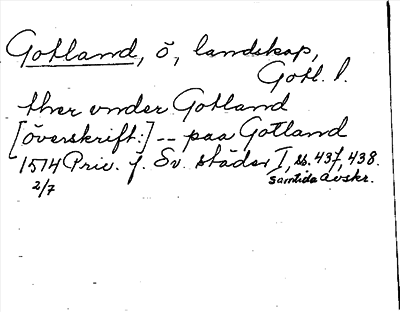 Gotland, ö, landskap,
Gotl. l.
ther vnder Gotland
[överskrift:] -- paa Gotland
1514 Priv. f. Sv. städer I, ss. 437, 438.
2/7 samtida avskr.